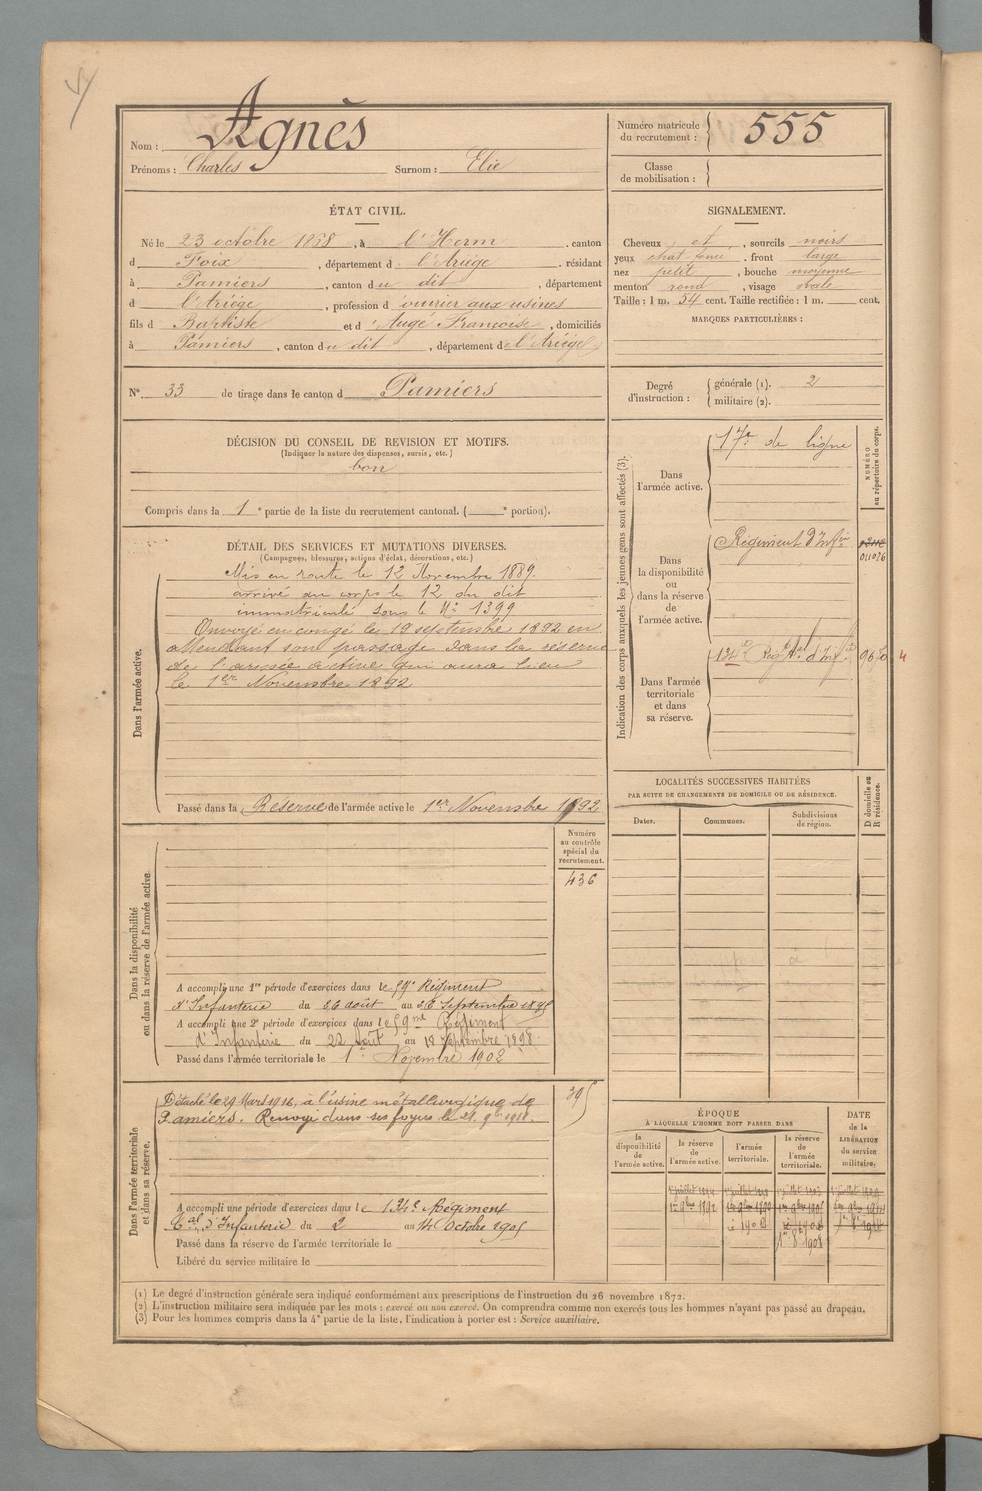 Nom : Agnès
Prénoms : Charles Surnom : Elie
ÉTAT CIVIL.
Né le 23 octobre 1868, à l'Herm, canton
d Foix, département d l'Ariège, résidant
à Pamiers, canton du dit, département
d l'Ariège, profession d'ouvrier aux usines
fils d Baptiste et d'Augé Françoise, domiciliés
à Pamiers, canton du dit, département de l'Ariège
N° 33 de tirage dans le canton d Pamiers
DÉCISION DU CONSEIL DE REVISION ET MOTIFS.
(Indiquer la nature des dispenses, sursis, etc.)
bon
Compris dans la 1e partie de la liste du recrutement cantonal. ( e portion).
DÉTAIL DES SERVICES ET MUTATIONS DIVERSES.
(Campagnes, blessures, actions d'éclat, décorations, etc.)
Dans l'armée active.
Mis en route le 12 Novembre 1889.
arrivé au corps le 12 du dit
immatriculé sous le N° 1399
Envoyé en congé le 19 septembre 1892 en
attendant son passage dans la réserve
de l'armée active qui aura lieu
le 1er Novembre 1892
Passé dans la Réserve de l'armée active le 1er Novembre 1892
Dans la disponibilité
ou dans la réserve de l'armée active.
Numéro
au contrôle
spécial du
recrutement.
436
A accompli une 1re période d'exercices dans le 59e Régiment
d'Infanterie du 26 août au Septembre 1895
A accompli une 2e période d'exercices dans le 59me Régiment
d'Infanterie du 22 août au 18 Septembre 1898
Passé dans l'armée territoriale le 1er Novembre 1902
Dans l'armée territoriale
et dans sa réserve.
Détaché le 29 Mars 1916, à l'usine métallurgique de
Pamiers. Renvoyé dans ses foyers le 21 9bre 1918.
395
A accompli une période d'exercices dans le 134e Régiment
tal d'Infanterie du 2 au 14 Octobre 1905
Passé dans la réserve de l'armée territoriale le
Libéré du service militaire le
Numéro matricule
du recrutement : 555
Classe
de mobilisation :
SIGNALEMENT.
Cheveux et, sourcils noirs
yeux chat. foncé, front large
nez petit, bouche moyenne
menton rond, visage ovale
Taille : 1 m. 54 cent. Taille rectifiée : 1 m. cent.
MARQUES PARTICULIÈRES :
Degré
d'instruction :
générale (1). 2
militaire (2).
Indication des corps auxquels les jeunes gens sont affectés (3).
NUMÉRO
au répertoire du corps.
Dans
l'armée active.
17e de ligne
Dans
la disponibilité
ou
dans la réserve
de
l'armée active.
Régiment d'Infie
011026
Dans l'armée
territoriale
et dans
sa réserve.
134e Régt tal d'Inf.
4
LOCALITÉS SUCCESSIVES HABITÉES
PAR SUITE DE CHANGEMENTS DE DOMICILE OU DE RÉSIDENCE.
Dates.
Communes.
Subdivisions
de région.
D domicile ou
R résidence.
ÉPOQUE
À LAQUELLE L'HOMME DOIT PASSER DANS
la
disponibilité
de
l'armée active.
la réserve
de
l'armée active.
l'armée
territoriale.
la réserve
de
l'armée
territoriale.
DATE
de la
LIBÉRATION
du service
militaire.
1er 9bre 1892
1er 8 1908
(1) Le degré d'instruction générale sera indiqué conformément aux prescriptions de l'instruction du 26 novembre 1872.
(2) L'instruction militaire sera indiquée par les mots : exercé ou non exercé. On comprendra comme non exercés tous les hommes n'ayant pas passé au drapeau.
(3) Pour les hommes compris dans la 4e partie de la liste, l'indication à porter est : Service auxiliaire.